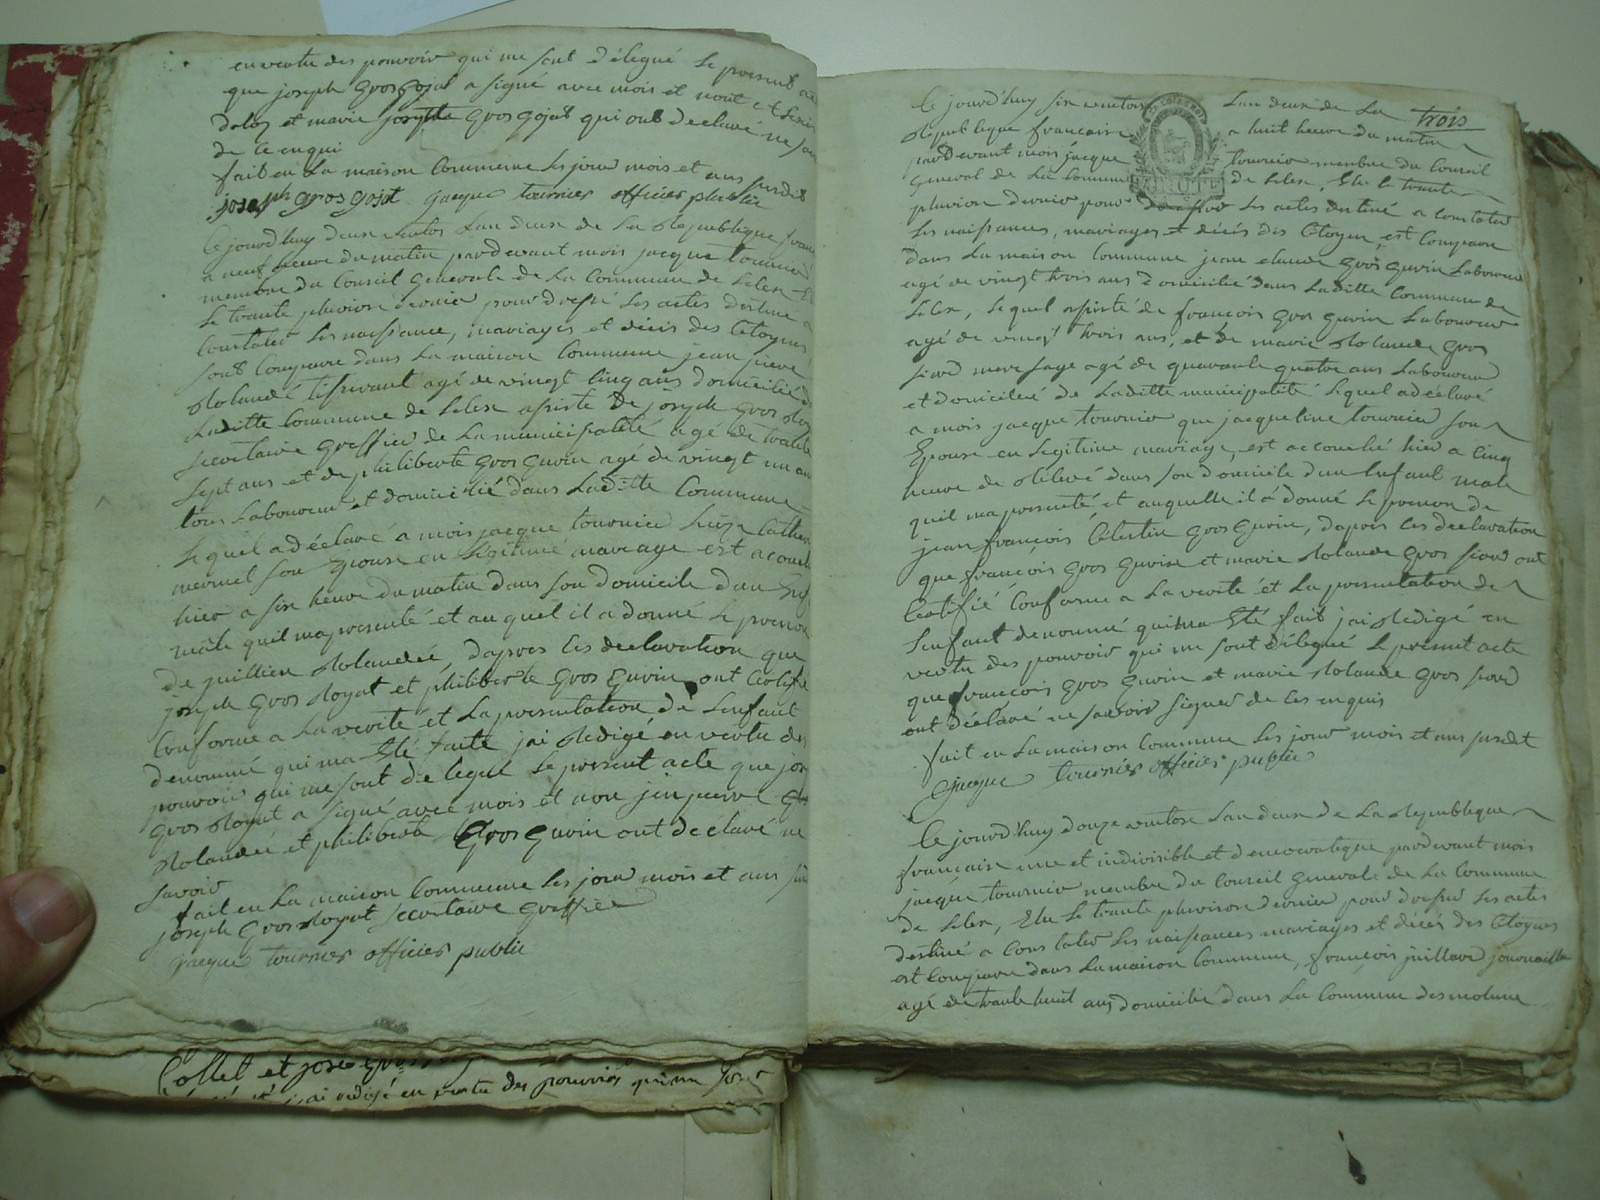 en vertu des pouvoir qui me sont délegué le present
que joseph gros gojat a signé avec mois et nont
dalos et marie josephte gros gojat qui ont declaré ne
de ce enqui
fait en la maison Commune les jour mois et ans susdit
joseph gros gojat jacque tournier officier public
Ce jourd'huy deux ventos Lan deux de La Republique
a neuf heure du matin pardevant mois jacque tournier
membre du Conseil generale de La Commune de Lelex
Le trante pluviose dernier pour dressé les actes destiné a
Constater les naissance, mariages et décés des Citoyens
sont Comparu dans La maison Commune jean pierre
Rolandé tisserant agé de vingt Cinq ans domicilié
Laditte Commune de Lelex assisté de joseph gros
secretaire greffier de La municipalité agé de trante
sept ans et de philiberte gros gurin agé de vingt un ans
tous Laboureur et domicilié dans Laditte Commune
Lequel a déclaré a mois jacque tournier
mermet son Epouse en Legitime mariage est acouché
hier a six heure du matin dans son domicile dun
mâle quil ma presenté et auquel il a donné Le prenom
de juillien Rolandée, dapres les declaration que
joseph gros Royat et philiberte gros gurin ont Certifié
Conforme a La verité et La presentation de Lenfant
denommé qui ma Eté faite jai Redigé en vertu des
pouvoirs qui me sont delegué Le present acte que
gros Royat a signé avec mois et non jin pierre
Rolandée et philiberte gros gurin ont declaré ne
savoir
fait en La maison Commune les jour mois et ans
joseph gros Royat secretaire greffier
jacque tournier officier public
Collet et
jai redigé en vertu des pouvoirs qui me sont
trois
Ce jourd'huy six ventos Lan deux de La
Republique francaise a huit heure du matin
pardevant mois jacque tournier membre du Conseil
general de La Commune de Lelex, Elu Le trante
pluviose dernier pour dresser les actes destiné a Constater
Les naissances, mariages et décés des Citoyen, est Comparu
dans La maison Commune jean claude gros gurin Laboureur
agé de vingt trois ans domicilié dans Laditte Commune de
Lelex, Lequel assisté de françois gros gurin Laboureur
agé de vingt trois ans, et de marie Rolande gros
siord mere sage agé de quarante quatre ans Laboureur
et domicilié de Laditte municipalité Lequel a déclaré
a mois jacque tournier que jacqueline tournier son
Epouse en Legitime mariage, est accouché hier a Cinq
heure de Relevé dans son domicile dun Enfant male
quil ma presenté et auquelle il a donné Le prenom de
jean françois Célestin gros gurin, dapres les declaration
que françois gros gurin et marie Rolande gros siord ont
Certifié Conforme a La verité et La presentation de
Lenfant denommé qui ma Eté fait jai Redigé en
vertu des pouvoir qui me sont délegué Le present acte
que françois gros gurin et marie Rolande gros siord
ont déclaré ne savoir signer de Ces enquis
fait en La maison Commune Les jour mois et ans susdit
jacque tournier officier public
Ce jourd'huy douze ventos Lan deux de La Republique
française une et indivisible et democratique pardevant mois
jacque tournier membre du Conseil generale de La Commune
de Lelex, Elu Le trante pluviose dernier pour dressé les actes
destiné a Constater Les naissances mariages et décés des Citoyens
est Comparu dans La maison Commune, françois juillard journallier
agé de trante huit ans domicilié dans La Commune desmolune